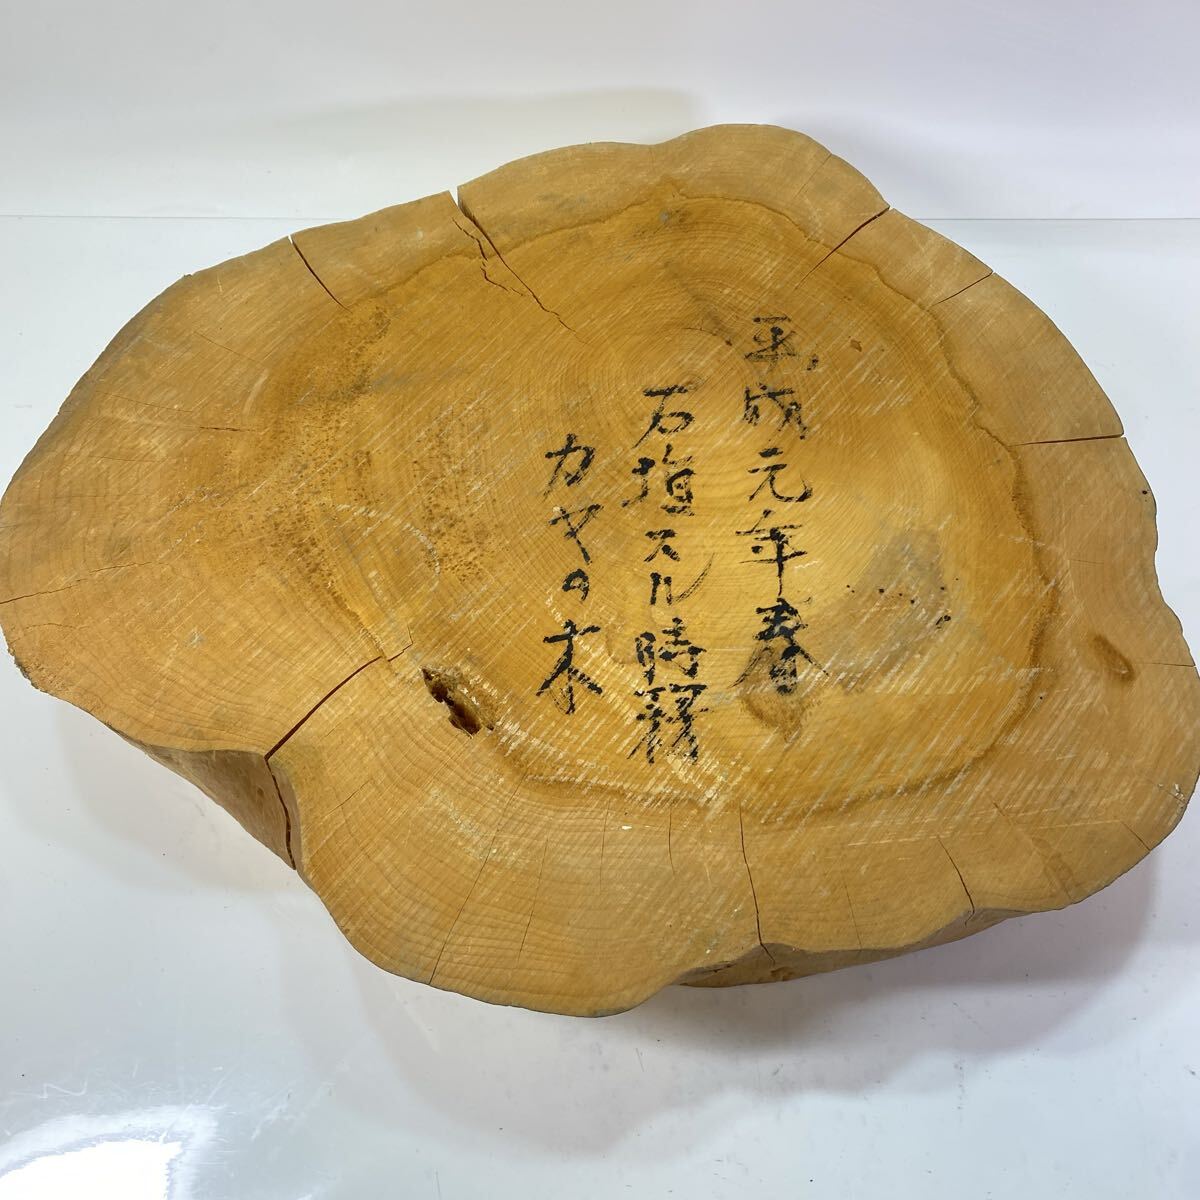 平成元年春
石垣スル時穫
カヤの木